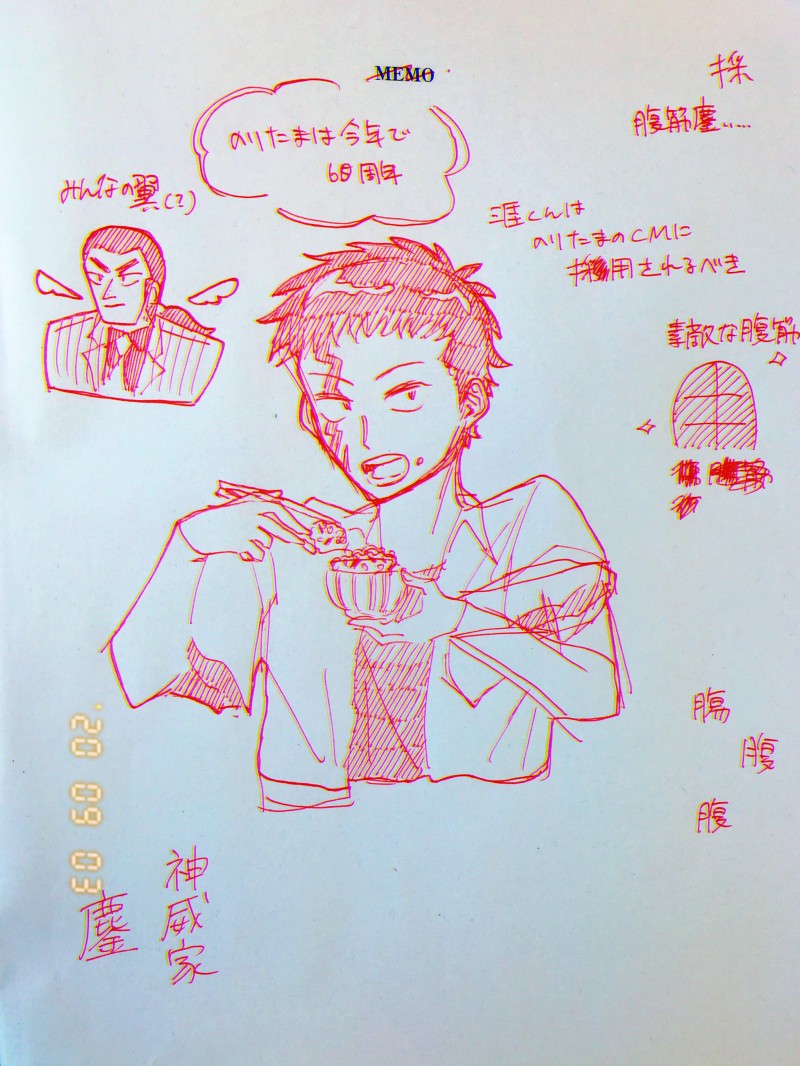 MEMO
採
腹筋鏖……
のりたまは今年で
60周年
みんなの翼(?)
涯くんは
のりたまのCMに
採用されるべき
素敵な腹筋
腸
腹
腹
神威家
鏖
'20 09 03